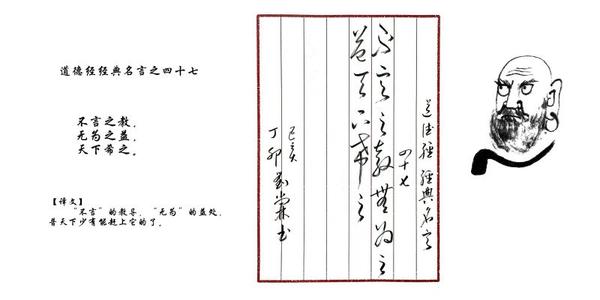 道德经经典名言之四十七
不言之教，
无为之益，
天下希之。
【译文】
“不言”的教导，“无为”的益处，
普天下少有能赶上它的了。
道德經經典名言
四十七
不言之教無為之
益天下希之
己亥
丁卯